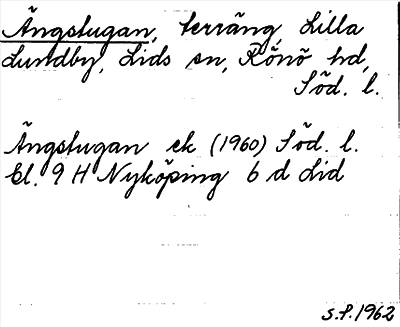 Ängstugan, terräng, Lilla
Lundby, Lids sn, Rönö hd,
Söd. l.
Ängstugan ek (1960) Söd. l.
El. 9 H Nyköping 6 d Lid
S.P. 1962